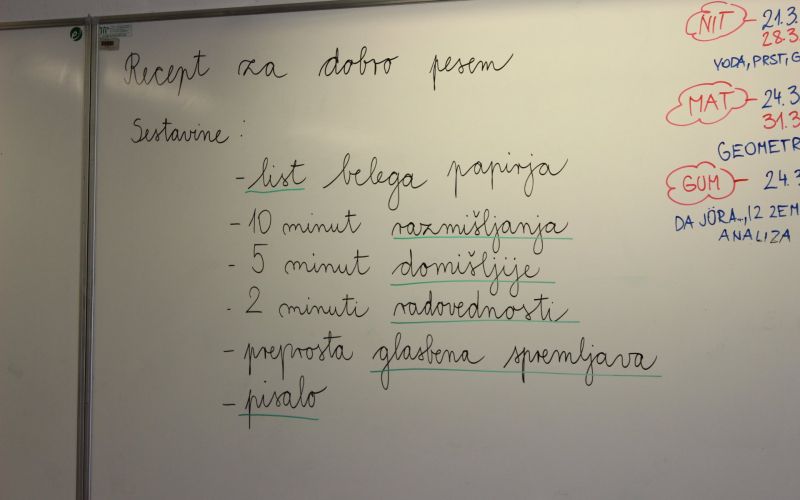 Recept za dobro pesem
Sestavine:
- list belega papirja
- 10 minut razmišljanja
- 5 minut domišljije
- 2 minuti radovednosti
- preprosta glasbena spremljava
- pisalo
NIT - 21.3.
28.3
VODA, PRST, G
MAT - 24.3
31.3
GEOMETR
GUM - 24.3
DA JÖRA..., IZ ZEM
ANALIZA